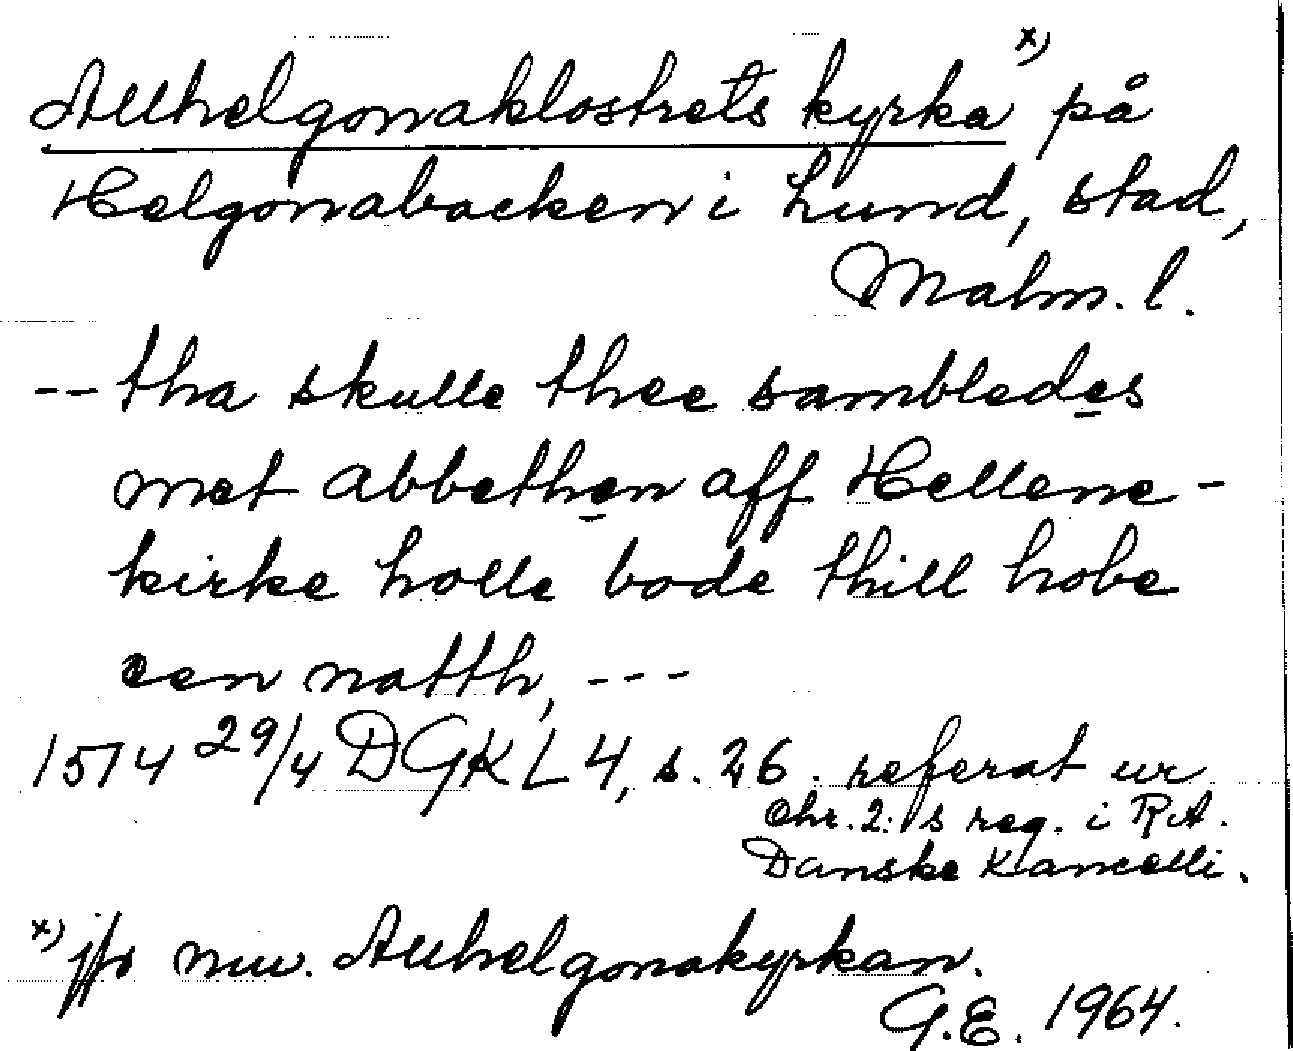 Allhelgonaklostrets kyrka x) på
Helgonabacken i Lund, stad,
Malm. l.
-- tha skulle thee sambledes
met abbethen aff Hellene-
kirke holle bode thill hobe
een natth, ---
1514 29/4 DGKL 4, s. 26. referat ur
Chr. 2:s reg. i RA.
Danske Kancelli.
x) jfr nuv. Allhelgonakyrkan.
G.E. 1964.